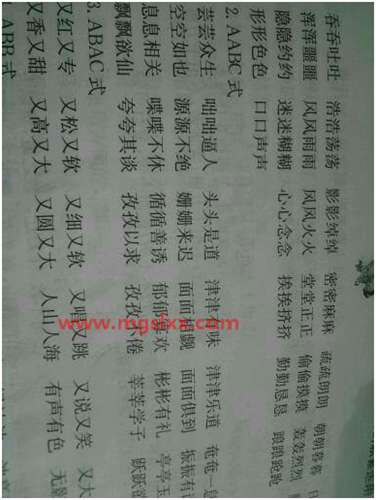 吞吞吐吐 浩浩荡荡 影影绰绰 密密麻麻 疏疏朗朗 朝朝暮暮
浑浑噩噩 风风雨雨 风风火火 堂堂正正 偷偷摸摸 轰轰烈烈
隐隐约约 迷迷糊糊 心心念念 挨挨挤挤 勤勤恳恳 踉踉跄跄
形形色色 口口声声
2. AABC 式
芸芸众生 咄咄逼人 头头是道 津津有味 津津乐道 奄奄一
空空如也 源源不绝 姗姗来迟 面面相觑 面面俱到 振振有
息息相关 喋喋不休 循循善诱 郁郁寡欢 彬彬有礼 亭亭玉
飘飘欲仙 夸夸其谈 孜孜以求 孜孜不倦 莘莘学子 跃跃欲
3. ABAC 式
又红又专 又松又软 又细又软 又唱又跳 又说又笑 又大
又香又甜 又高又大 又圆又大 人山人海 有声有色 无影
ABB 式
www.mgsfxx.com